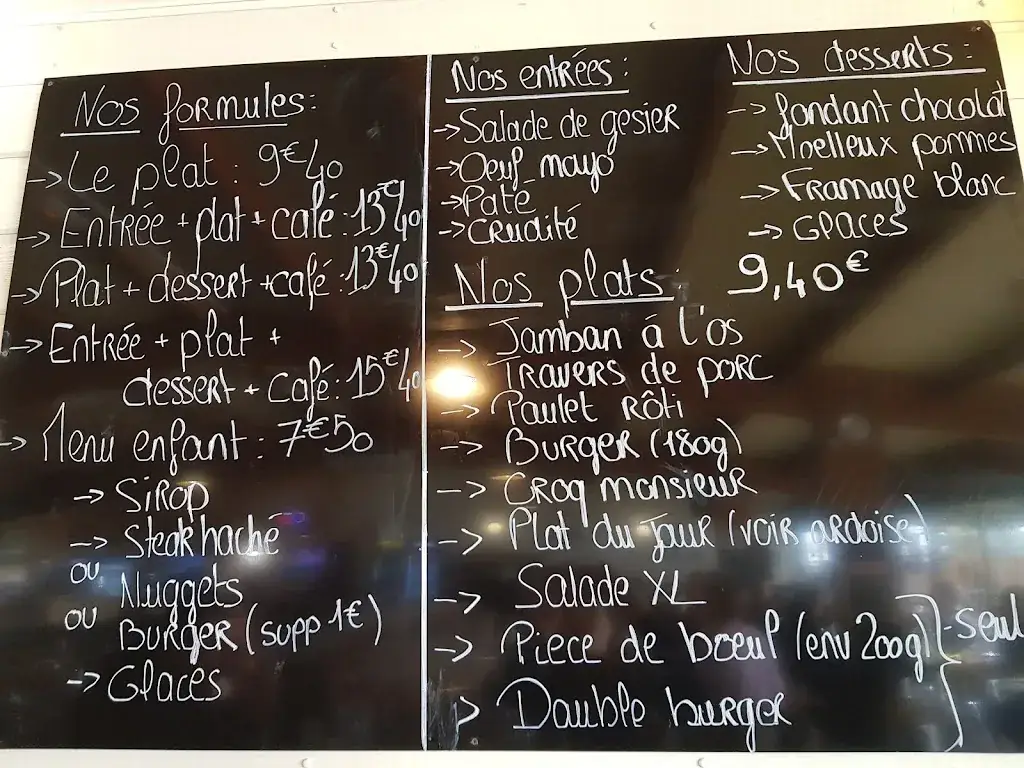 Nos formules:
-> Le plat : 9€40
-> Entrée + plat + café : 13€40
-> Plat + dessert + café : 13€40
-> Entrée + plat +
dessert + café : 15€40
-> Menu enfant : 7€50
-> Sirop
-> Steak haché
ou Nuggets
ou Burger (supp 1€)
-> Glaces
Nos entrées :
-> Salade de gesier
-> Oeuf mayo
-> Pate
-> Crudité
Nos desserts :
-> fondant chocolat
-> Moelleux pommes
-> Framage blanc
-> Glaces
Nos plats : 9,40€
-> Jamban á l'os
-> Travers de porc
-> Paulet rôti
-> Burger (180g)
-> Croq monsieur
-> Plat du jour (voir ardoise)
-> Salade XL
-> Piece de boeuf (env 200g)
-> Double burger
- seul